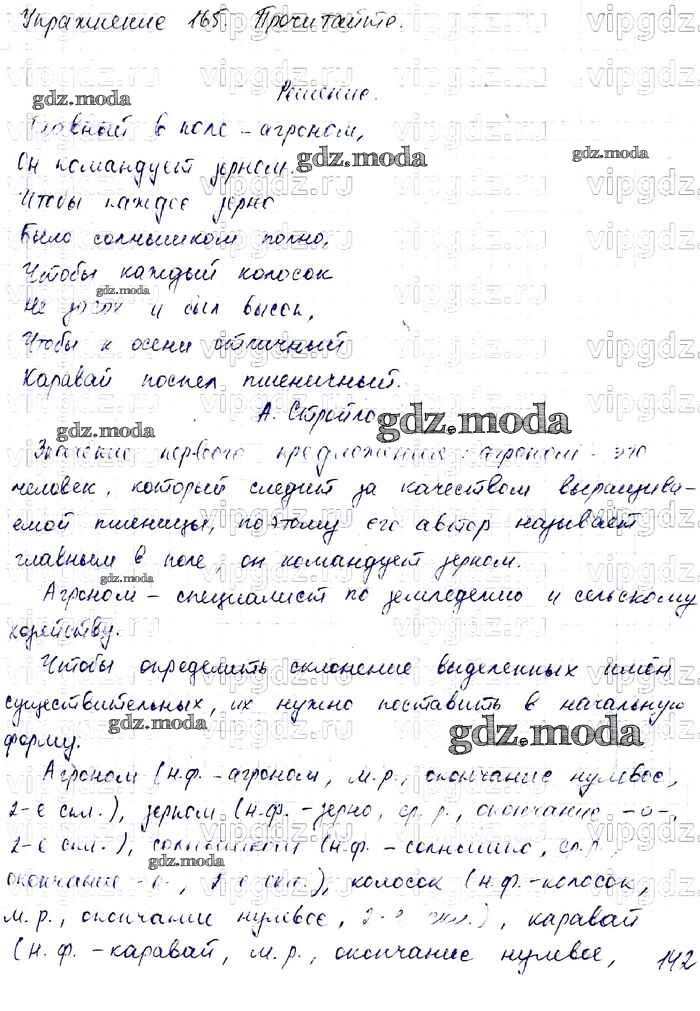 Упражнение 165. Прочитайте.
Решение.
Главный в поле - агроном,
Он командует зерном.
Чтобы каждое зерно
Было солнышком полно,
Чтобы каждый колосок
Не и был высок,
Чтобы к осени отличный
Каравай поспел пшеничный.
А. Стройло
Значение первого предложения - агроном - это
человек, который следит за качеством выращива-
емой пшеницы, поэтому его автор называет
главным в поле, он командует зерном.
Агроном - специалист по земледелию и сельскому
хозяйству.
Чтобы определить склонение выделенных имён
существительных, их нужно поставить в начальную
форму.
Агроном (н.ф. - агроном, м.р., окончание нулевое,
2-е скл.), зерном (н.ф. - зерно, ср.р., окончание -о-,
2-е скл.), солнышком (н.ф. - солнышко, ср.р.,
окончание -о-, 2-е скл.), колосок (н.ф. - колосок,
м.р., окончание нулевое, 2-е скл.), каравай
(н.ф. - каравай, м.р., окончание нулевое,
142
gdz.moda
gdz.moda
gdz.moda
gdz.moda
gdz.moda
gdz.moda
gdz.moda
gdz.moda
gdz.moda
gdz.moda
gdz.moda
gdz.moda
vipgdz.ru